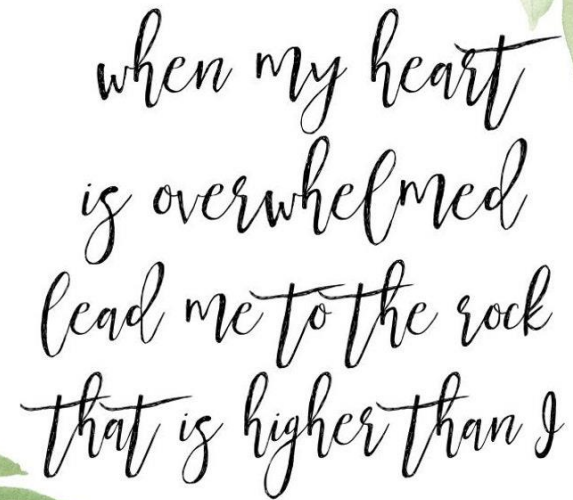 when my heart
is overwhelmed
lead me to the rock
that is higher than I